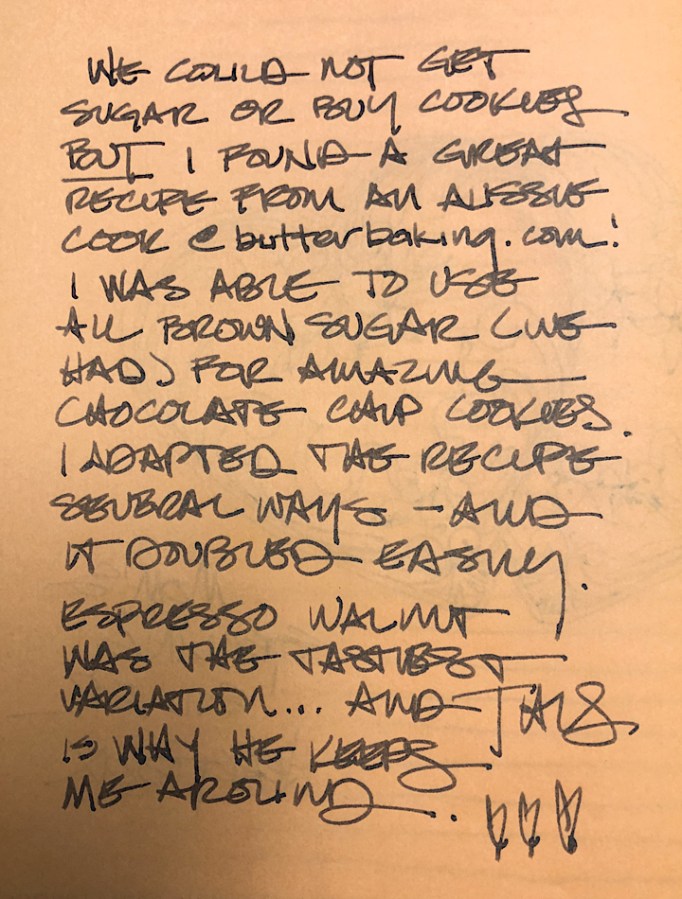 WE COULD NOT GET
SUGAR OR BUY COOKIES
BUT I FOUND A GREAT
RECIPE FROM AN AUSSIE
COOK @butterbaking.com!
I WAS ABLE TO USE
ALL BROWN SUGAR (WE
HAD) FOR AMAZING
CHOCOLATE CHIP COOKIES.
I ADAPTED THE RECIPE
SEVERAL WAYS - AND
IT DOUBLED EASILY.
ESPRESSO WALNUT
WAS THE TASTIEST
VARIATION... AND THIS
IS WHY HE KEEPS
ME AROUND.